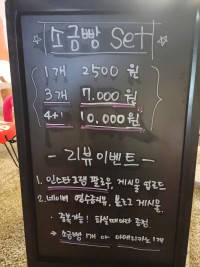 소금빵 set
1개 2500원
3개 7.000원
4+1 10.000원
- 리뷰이벤트 -
1. 인스타그램 팔로우, 게시물 업로드
2. 네이버 영수증리뷰, 블로그 게시물
중복가능!
→ 소금빵 1개 or 아메리카노 1개